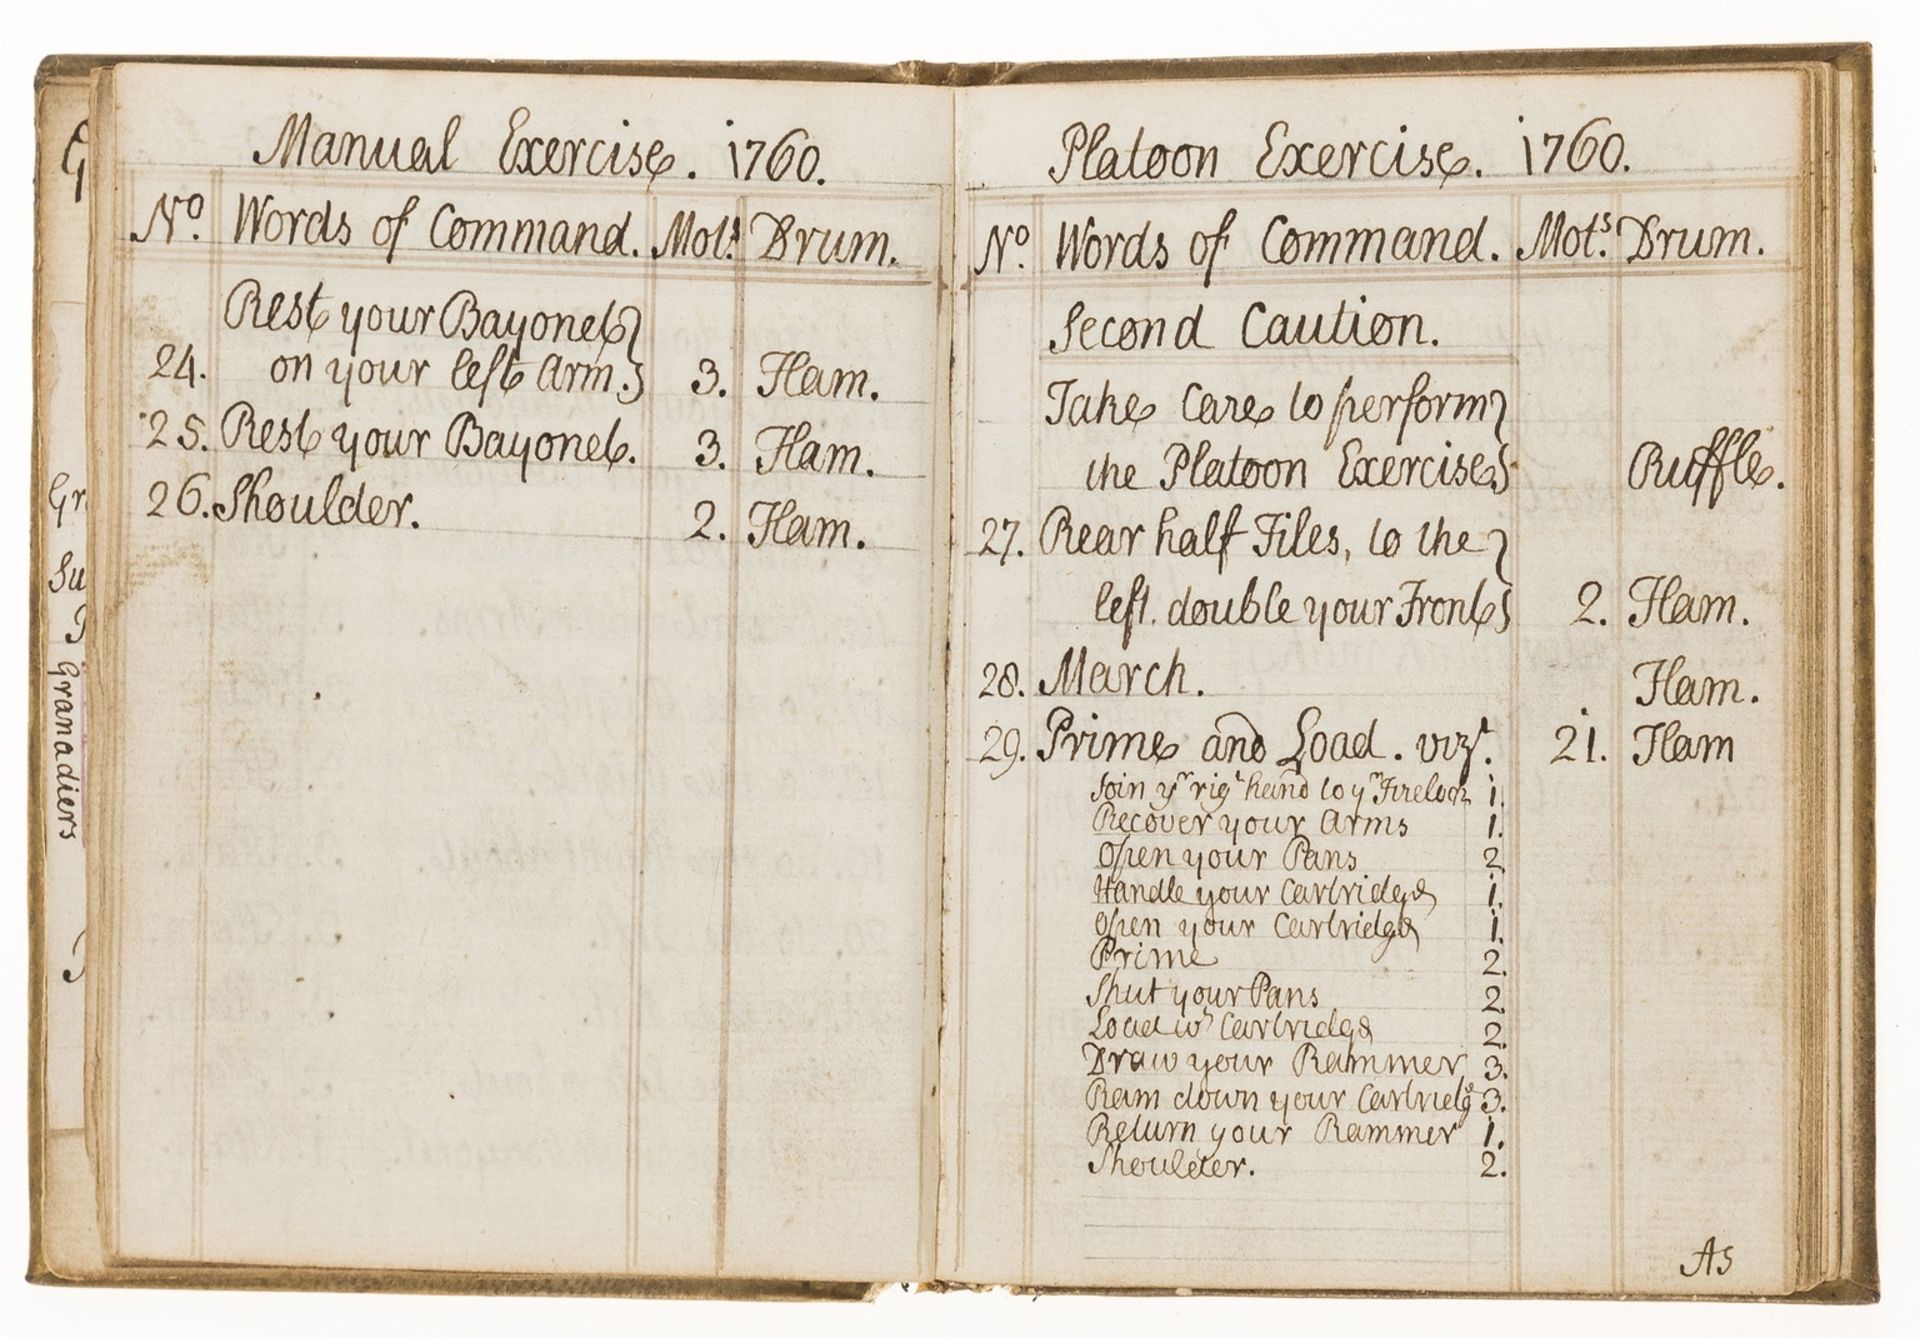 Manual Exercise. 1760.
No. Words of Command. Mots. Drum.
Rest your Bayonet
24. on your left Arm. 3. Flam.
25. Rest your Bayonet. 3. Flam.
26. Shoulder. 2. Flam.
Gr
Su
Granadiers
Platoon Exercise. 1760.
No. Words of Command. Mots. Drum.
Second Caution.
Take Care to perform
the Platoon Exercise Ruffle.
27. Rear half Files, to the
left. double your Front 2. Flam.
28. March. Flam.
29. Prime and Load. vizt. 21. Flam
Join yr. rigt hand to yr. Firelock 1.
Recover your Arms 1.
Open your Pans 2
Handle your Cartridge 1.
Open your Cartridge 1.
Prime 2.
Shut your Pans 2.
Load wh Cartridge 2.
Draw your Rammer 3.
Ram down your Cartridge 3.
Return your Rammer 1.
Shoulder. 2.
As